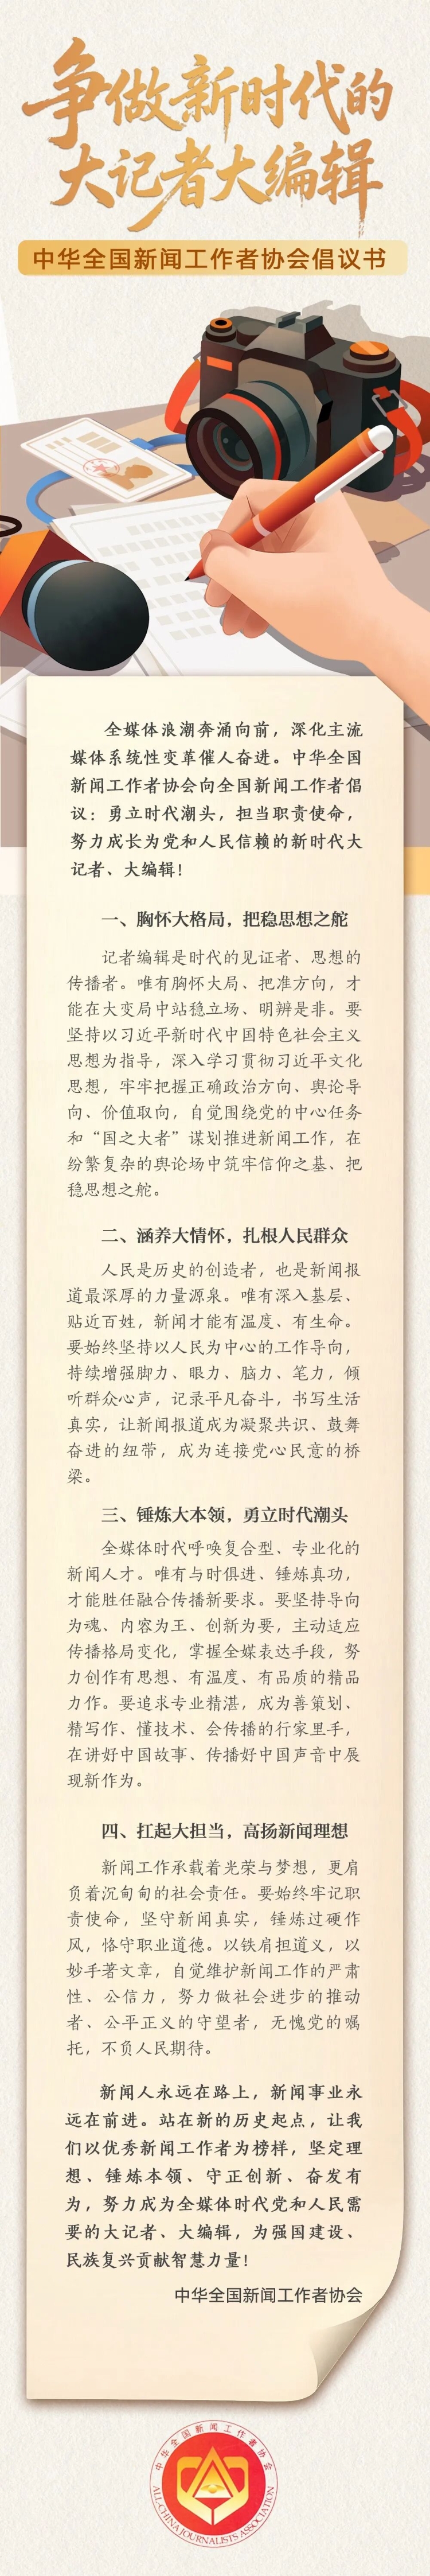 争做新时代的
大记者大编辑
中华全国新闻工作者协会倡议书
全媒体浪潮奔涌向前，深化主流
媒体系统性变革催人奋进。中华全国
新闻工作者协会向全国新闻工作者倡
议：勇立时代潮头，担当职责使命，
努力成长为党和人民信赖的新时代大
记者、大编辑！
一、胸怀大格局，把稳思想之舵
记者编辑是时代的见证者、思想的
传播者。唯有胸怀大局、把准方向，才
能在大变局中站稳立场、明辨是非。要
坚持以习近平新时代中国特色社会主义
思想为指导，深入学习贯彻习近平文化
思想，牢牢把握正确政治方向、舆论导
向、价值取向，自觉围绕党的中心任务
和“国之大者”谋划推进新闻工作，在
纷繁复杂的舆论场中筑牢信仰之基、把
稳思想之舵。
二、涵养大情怀，扎根人民群众
人民是历史的创造者，也是新闻报
道最深厚的力量源泉。唯有深入基层、
贴近百姓，新闻才能有温度、有生命。
要始终坚持以人民为中心的工作导向，
持续增强脚力、眼力、脑力、笔力，倾
听群众心声，记录平凡奋斗，书写生活
真实，让新闻报道成为凝聚共识、鼓舞
奋进的纽带，成为连接党心民意的桥
梁。
三、锤炼大本领，勇立时代潮头
全媒体时代呼唤复合型、专业化的
新闻人才。唯有与时俱进、锤炼真功，
才能胜任融合传播新要求。要坚持导向
为魂、内容为王、创新为要，主动适应
传播格局变化，掌握全媒表达手段，努
力创作有思想、有温度、有品质的精品
力作。要追求专业精湛，成为善策划、
精写作、懂技术、会传播的行家里手，
在讲好中国故事、传播好中国声音中展
现新作为。
四、扛起大担当，高扬新闻理想
新闻工作承载着光荣与梦想，更肩
负着沉甸甸的社会责任。要始终牢记职
责使命，坚守新闻真实，锤炼过硬作
风，恪守职业道德。以铁肩担道义，以
妙手著文章，自觉维护新闻工作的严肃
性、公信力，努力做社会进步的推动
者、公平正义的守望者，无愧党的嘱
托，不负人民期待。
新闻人永远在路上，新闻事业永
远在前进。站在新的历史起点，让我
们以优秀新闻工作者为榜样，坚定理
想、锤炼本领、守正创新、奋发有
为，努力成为全媒体时代党和人民需
要的大记者、大编辑，为强国建设、
民族复兴贡献智慧力量！
中华全国新闻工作者协会
中华全国新闻工作者协会
ALL-CHINA JOURNALISTS ASSOCIATION